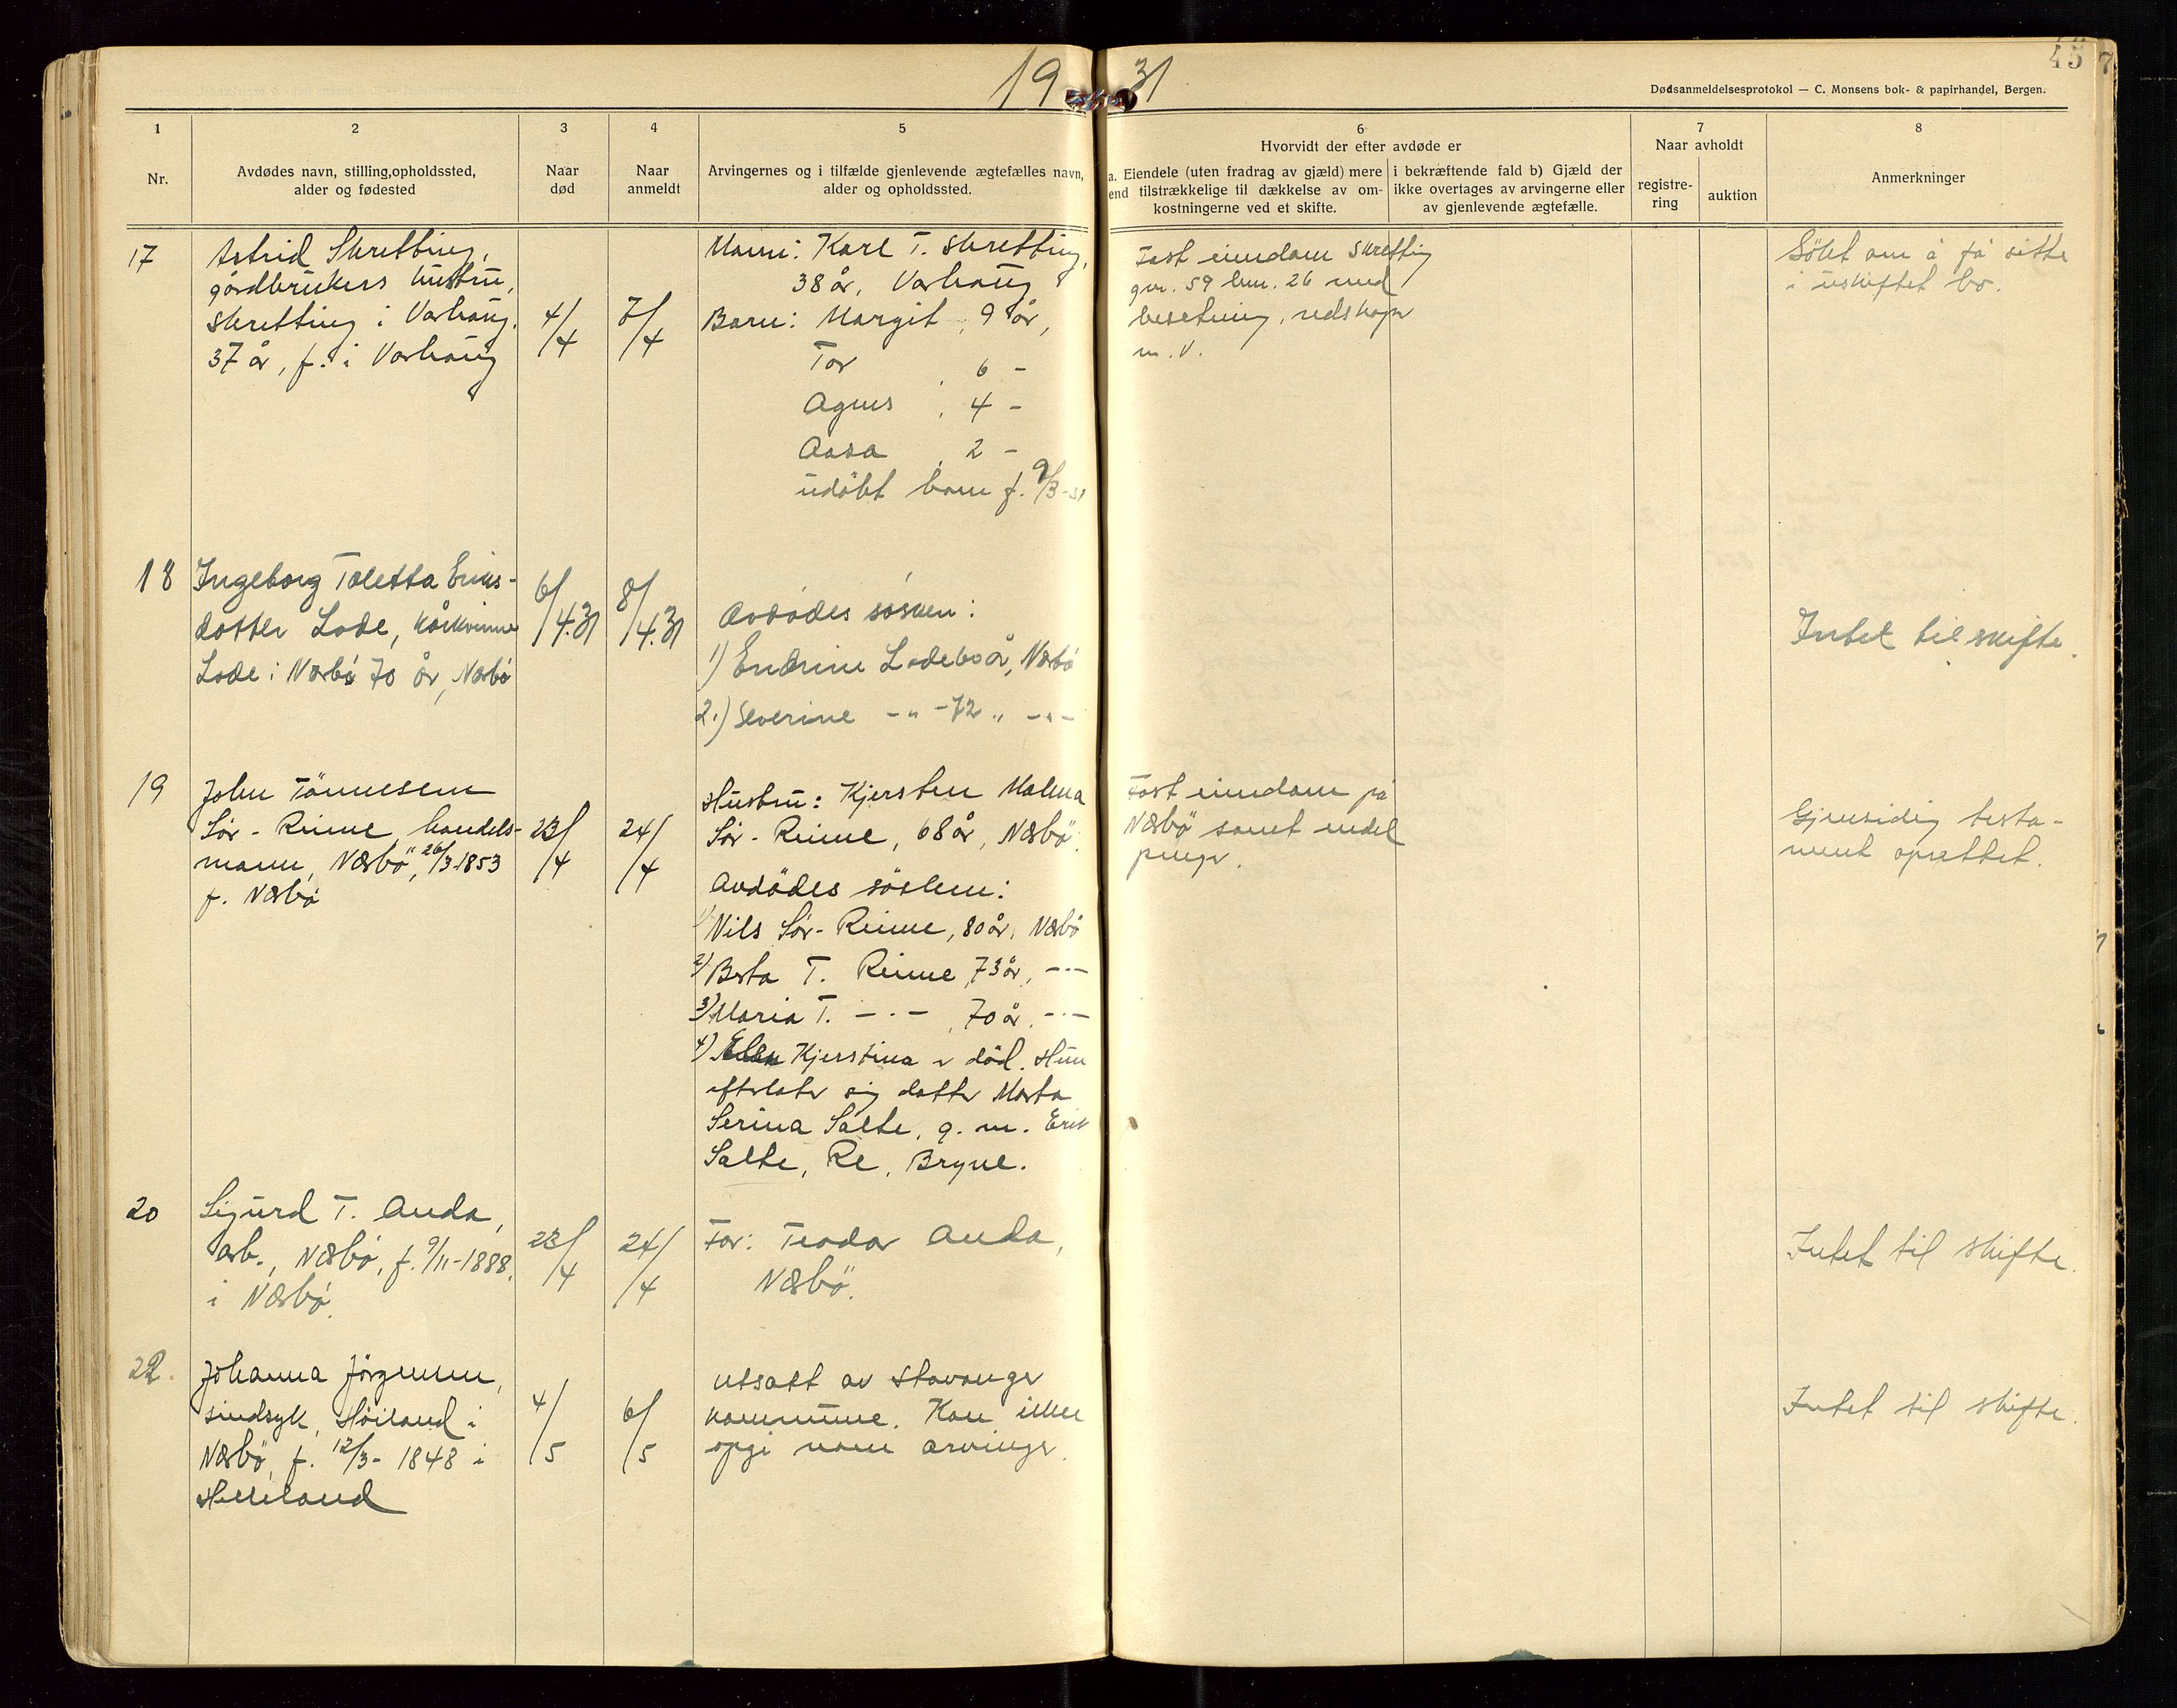 1931
45
Dødsanmeldelsesprotokol — C. Monsens bok- & papirhandel, Bergen.
1
2
3
4
5
6
7
8
Nr.
Avdødes navn, stilling, opholdssted,
alder og fødested
Naar
død
Naar
anmeldt
Arvingernes og i tilfælde gjenlevende ægtefælles navn,
alder og opholdssted.
Hvorvidt der efter avdøde er
a. Eiendele (uten fradrag av gjæld) mere
end tilstrækkelige til dækkelse av om-
kostningerne ved et skifte.
i bekræftende fald b) Gjæld der
ikke overtages av arvingerne eller
av gjenlevende ægtefælle.
Naar avholdt
registre-
ring
auktion
Anmerkninger
17
Astrid Skretting,
gårdbrukers hustru,
Skretting i Varhaug.
37 år, f. i Varhaug
4/4
7/4
Mann: Karl T. Skretting,
38 år, Varhaug
Barn: Margit, 9 år,
Tor, 6 -
Agnes, 4 -
Aasa, 2 -
udöbt barn f. 9/3-31
Fast eiendom Skretting
gnr. 59 bnr. 26 med
besetning, redskaper
m.v.
Sökt om å få sitte
i uskiftet bo.
18
Ingeborg Taletta Eriks-
dotter Lode, kårkvinne
Lode i Nærbö 70 år, Nærbö
6/4.31
8/4.31
Avdödes sösken:
1) Endrine Lode 60 år, Nærbö
2.) Severine -"- 72 " -"-
Intet til skifte.
19
John Tönnesen
Sör-Reime, handels-
mann, Nærbö, 26/3 1853
f. Nærbö
23/4
24/4
Hustru: Kjersten Malena
Sör-Reime, 68 år, Nærbö.
Avdödes sösken:
1) Nils Sör-Reime, 80 år, Nærbö
2) Berta T. Reime, 73 år, -"-
3) Maria T. -"-, 70 år, -"-
4) Kjerstina er död. Hun
efterlater sig datter Marta
Serina Salte, g. m. Erik
Salte, Re, Bryne.
Fast eiendom på
Nærbö samt endel
penger.
Gjensidig testa-
ment oprettet.
20
Sigurd T. Anda,
arb., Nærbö, f. 9/11-1888,
i Nærbö.
23/4
24/4
Far: Teodor Anda,
Nærbö.
Intet til skifte.
22.
Johanna Jörgensen,
sindsyk, Höiland i
Nærbö, f. 12/3-1848 i
Helleland
4/5
6/5
Utsatt av Stavanger
kommune. Kan ikke
opgi noen arvinger.
Intet til skifte.